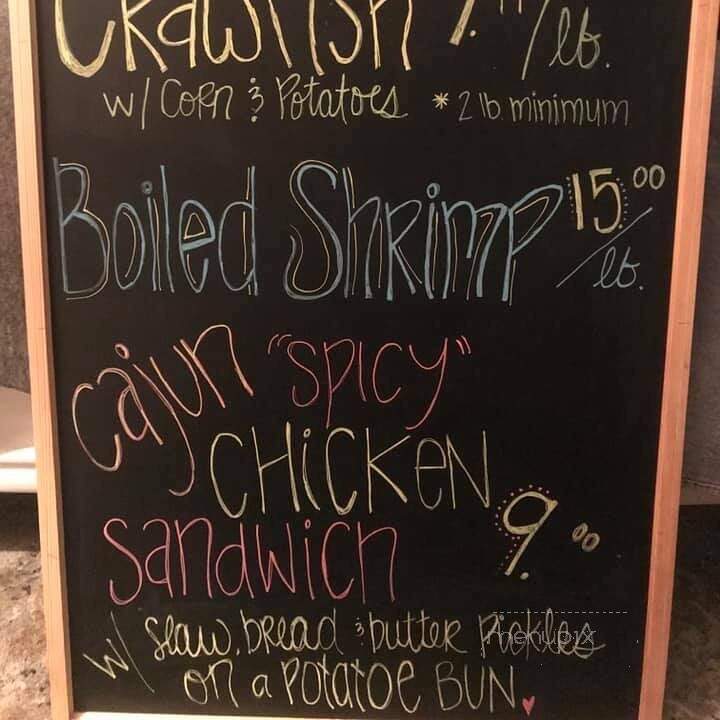 CRawfish 9. /lb.
w/ Corn & Potatoes * 2 lb minimum
Boiled Shrimp 15.00 /lb.
Cajun "Spicy"
CHicKeN
Sandwich 9.00
w/ slaw, bread & butter Pickles
on a Potatoe BUN.
menupix